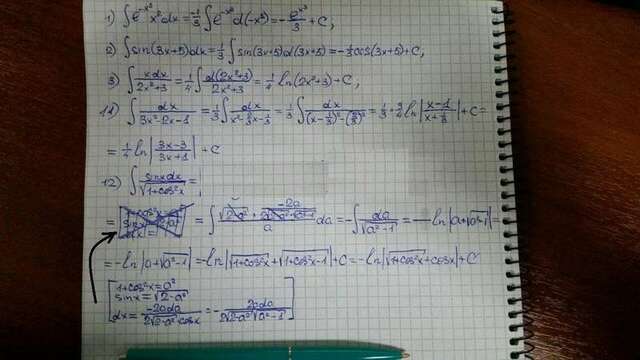 1) ∫e^(-x³)x²dx = -1/3 ∫e^(-x³)d(-x³) = -e^(-x³)/3 + C,
2) ∫sin(3x+5)dx = 1/3 ∫sin(3x+5)d(3x+5) = -1/3 cos(3x+5) + C,
3) ∫xdx/(2x²+3) = 1/4 ∫d(2x²+3)/(2x²+3) = 1/4 ln(2x²+3) + C,
11) ∫dx/(3x²-2x-1) = 1/3 ∫dx/(x²-2/3x-1/3) = 1/3 ∫dx/((x-1/3)²-(2/3)²) = 1/3·3/4 ln|(x-1)/(x+1/3)| + C =
= 1/4 ln|(3x-3)/(3x+1)| + C
12) ∫sinxdx/√(1+cos²x) =
= = ∫ da = -∫da/√(a²-1) = -ln|a+√(a²-1)| =
= -ln|a+√(a²-1)| = -ln|√(1+cos²x)+√(1+cos²x-1)| + C = -ln|√(1+cos²x)+cosx| + C
1+cos²x = a²
sinx = √(2-a²)
dx = -2ada/(2√(2-a²)·cosx) = -2ada/(2√(2-a²)√(a²-1))